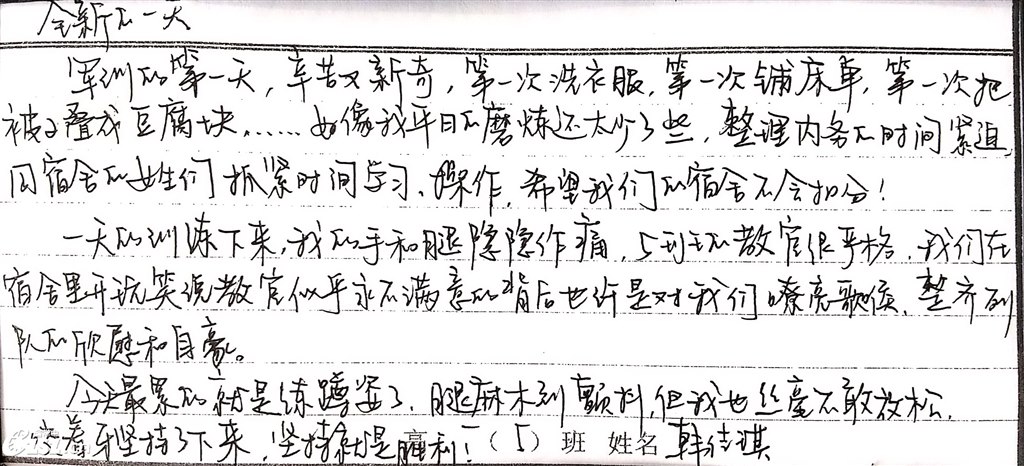 全新的一天
军训的第一天，辛苦又新奇，第一次洗衣服，第一次铺床单，第一次把
被子叠成豆腐块，……好像我平日的磨炼还太少了些，整理内务的时间紧迫，
同宿舍的女生们抓紧时间学习、操作，希望我们的宿舍不会扣分！
一天的训练下来，我的手和腿隐隐作痛，5班的教官很严格，我们在
宿舍里开玩笑说教官似乎永不满意的背后也许是对我们嘹亮歌喉、整齐列
队的欣慰和自豪。
今天最累的就是练蹲姿了，腿麻木到颤抖，但我也丝毫不敢放松，
咬着牙坚持了下来，坚持就是胜利！（5）班 姓名 韩佳琪